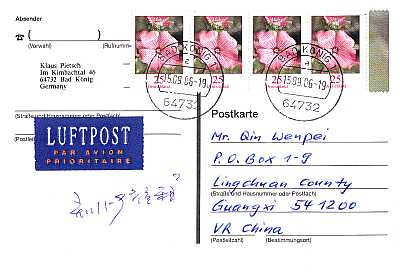 Absender
☎ (                    )
(Vorwahl) (Rufnummer
Klaus Pietsch
Im Kimbachtal 46
64732 Bad König
Germany
(Straße und Hausnummer oder Postfach)
(Postleitzahl)
LUFTPOST
PAR AVION
PRIORITAIRE
25 25 25 25
BAD KÖNIG 1
15.09.06-19
64732
BAD KÖNIG
15.09.06-19
64732
Postkarte
Mr. Qin Wenpei
P.O. Box 1-9
Lingchuan County
(Straße und Hausnummer oder Postfach)
Guangxi 541200
VR China
(Postleitzahl) (Bestimmungsort)